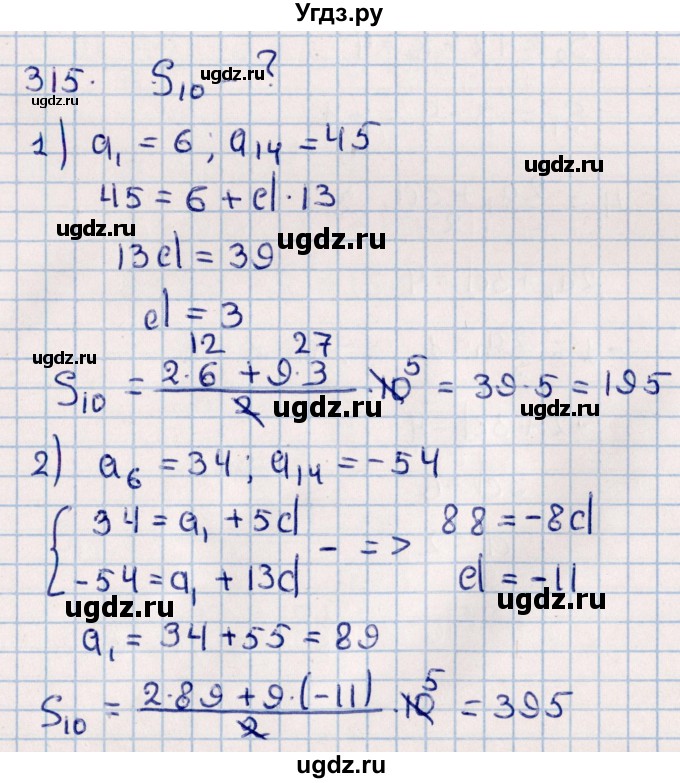 Угдз.ру
315. S₁₀ - ?
ugdz.ru
ugdz.ru
1) a₁ = 6 ; a₁₄ = 45
ugdz.ru
45 = 6 + d · 13
ugdz.ru
ugdz.ru
13d = 39
d = 3
12 27
ugdz.ru
S₁₀ = (2·6 + 9·3)/2 · 10 5 = 39·5 = 195
ugdz.ru
2) a₆ = 34 ; a₁₄ = -54
{ 34 = a₁ + 5d
-54 = a₁ + 13d - =>
88 = -8d
d = -11
ugdz.ru
ugdz.ru
a₁ = 34 + 55 = 89
S₁₀ = (2·89 + 9·(-11))/2 · 10 5 = 395
ugdz.ru
ugdz.ru